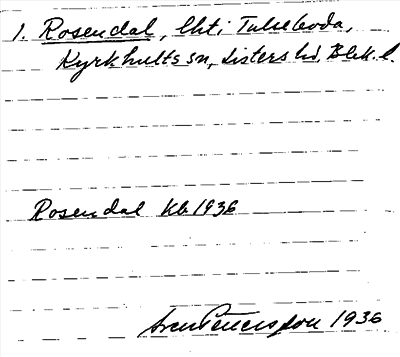 1. Rosendal, lht i Tulseboda,
Kyrkhults sn, Listers hd, Blek. l.
Rosendal Kb 1936
Sven Petersson 1936